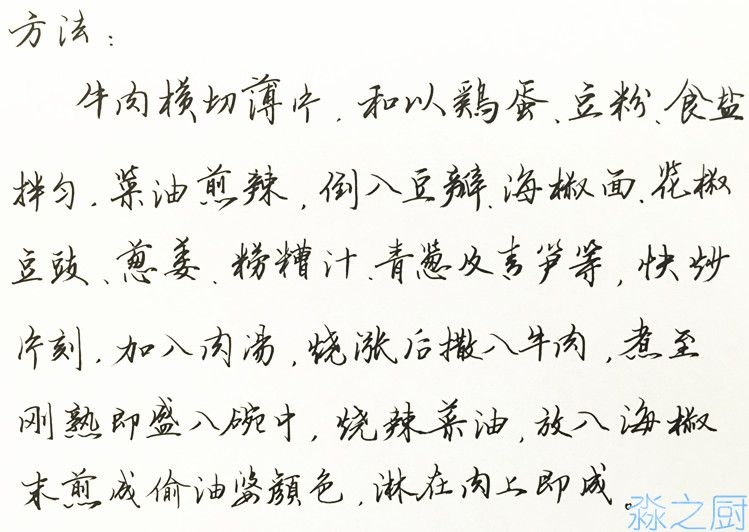 方法：
牛肉横切薄片，和以鸡蛋、豆粉、食盐
拌匀，菜油煎辣，倒入豆瓣、海椒面、花椒
豆豉、葱姜、捞糟汁、青葱及青笋等，快炒
片刻，加入肉汤，烧涨后撒入牛肉，煮至
刚熟即盛入碗中，烧辣菜油，放入海椒
末煎成偷油婆颜色，淋在肉上即成。
淼之厨